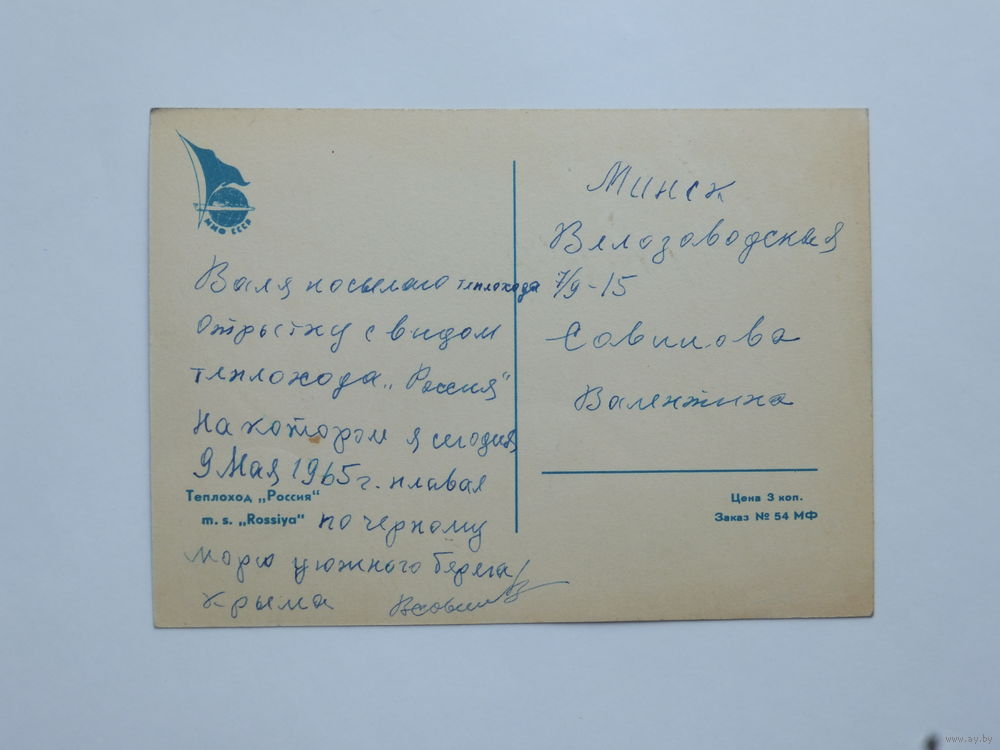 ММФ СССР
Валя посылаю теплохода
Открытку с видом
теплохода „Россия"
На котором я сегодня
9 Мая 1965 г. плавал
Теплоход „Россия"
m. s. „Rossiya"
по черному
морю у южного берега
Крыма
Минск
Велозаводская
7/9-15
Савинова
Валентина
Цена 3 коп.
Заказ № 54 МФ
www.ay.by